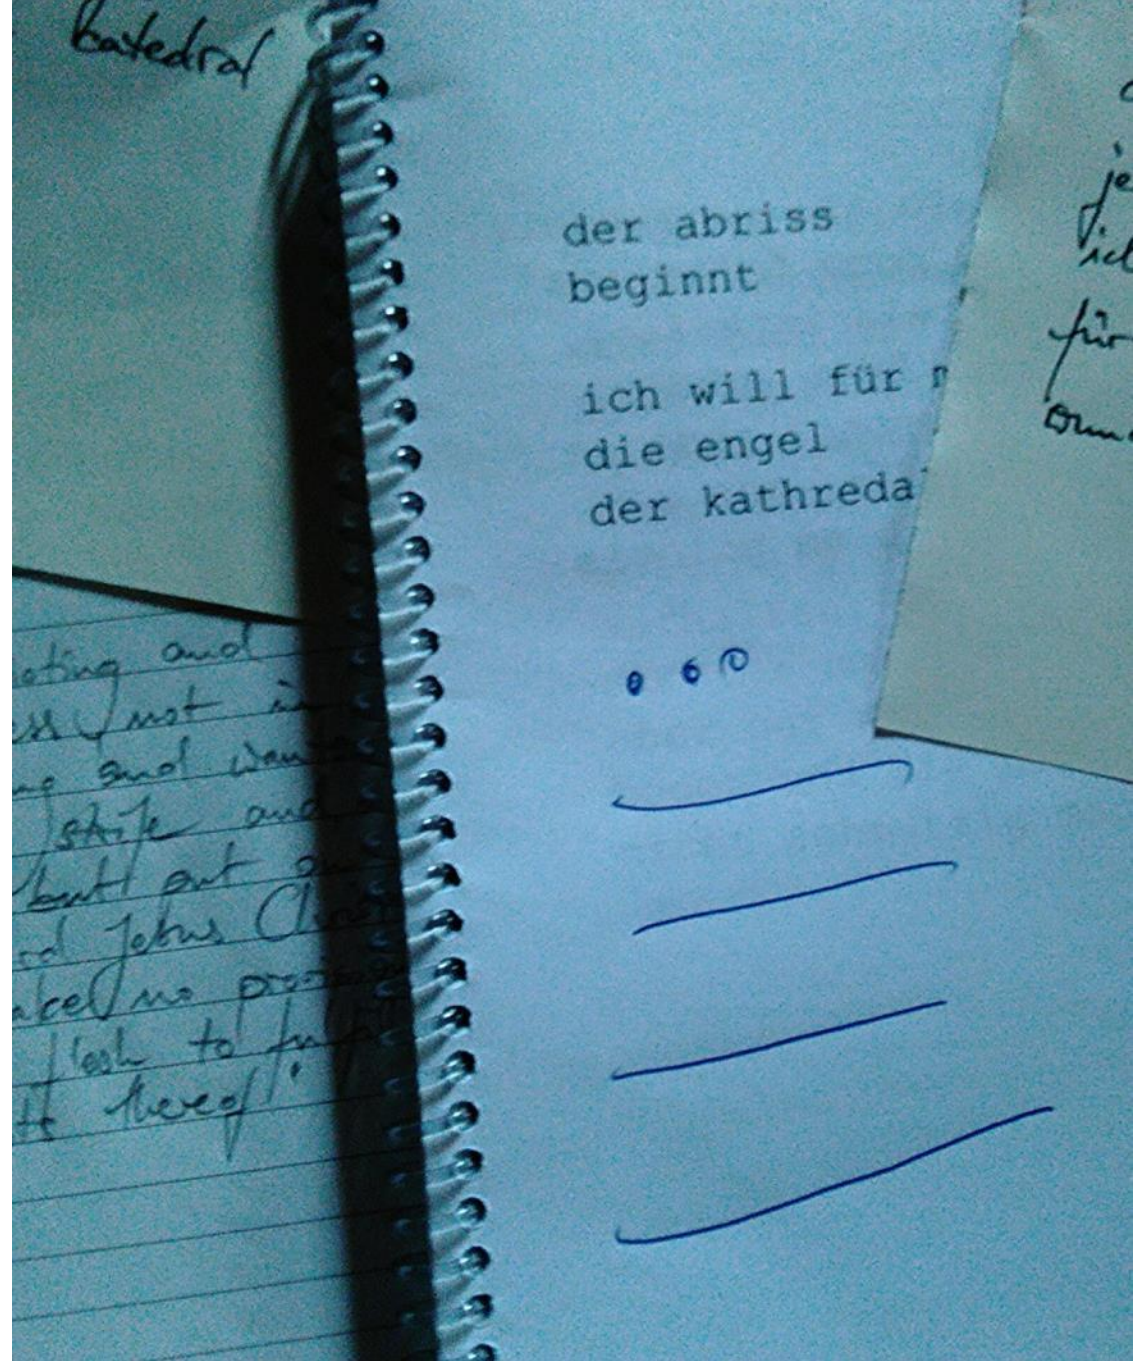 katedral
der abriss
beginnt
ich will für
die engel
der kathreda
je
ich
für
oting and
ess not in
ng and wan
strife and
but put on
rd Jesus Chris
ake no pro
flesh to ful
ts thereof".